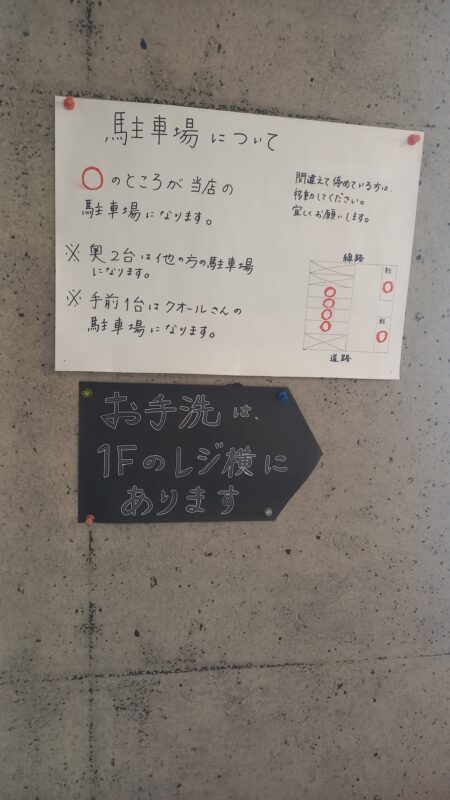 駐車場について
○のところが当店の
駐車場になります。
※奥2台は他の方の駐車場
になります。
※手前1台はクオールさんの
駐車場になります。
間違えて停めている方は、
移動してください。
宜しくお願いします。
線路
軽
軽
道路
お手洗は、
1Fのレジ横に
あります